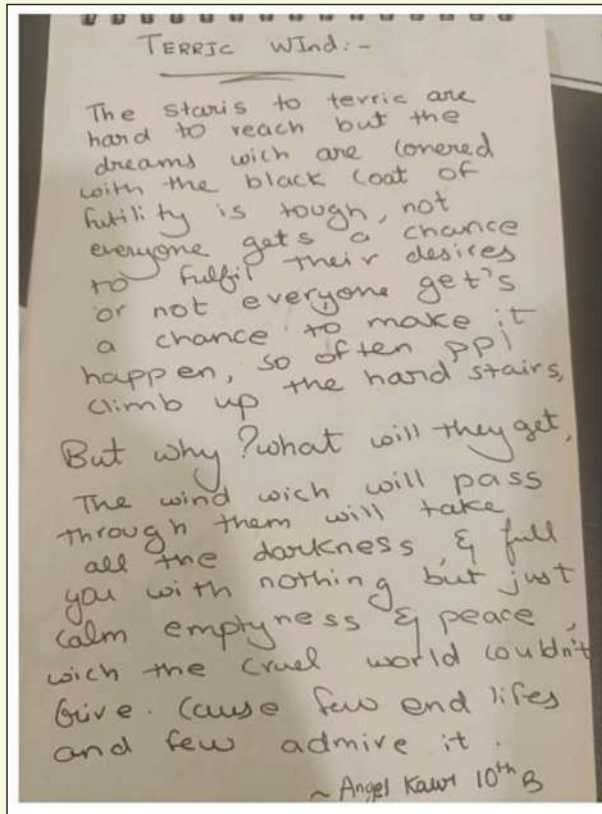 TERRIC WInd:-
The staris to terric are
hard to reach but the
dreams wich are conered
with the black coat of
futility is tough, not
everyone gets a chance
to fulfil their desires
or not everyone get's
a chance to make it
happen, so often ppl
climb up the hard stairs,
But why? what will they get,
The wind wich will pass
through them will take
all the darkness, & full
you with nothing but just
calm emptyness & peace,
wich the cruel world couldn't
Give. Cause few end lifes
and few admire it.
~ Angel Kaur 10th B